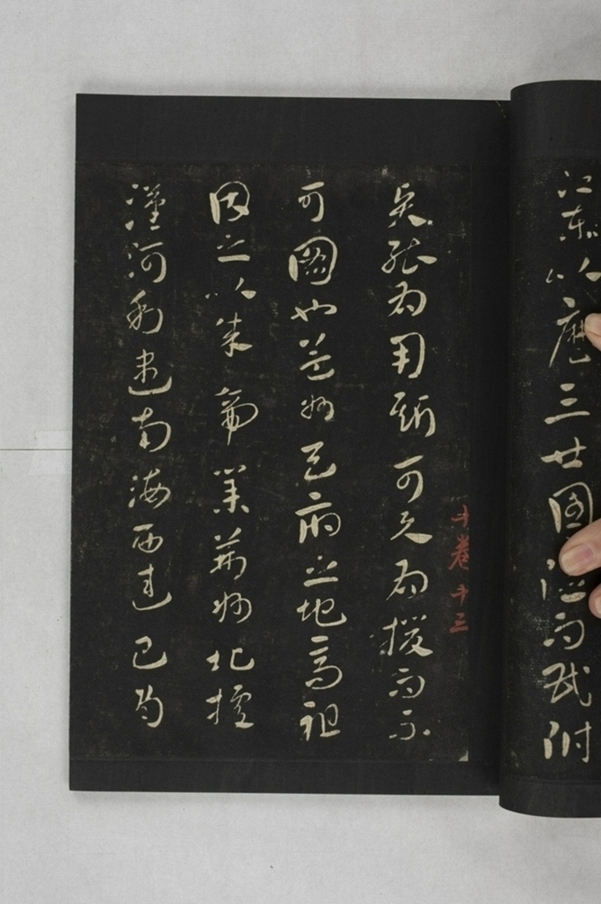 江東以歷三世國險而民附
十卷 十三
賢能為用斯可與為援而不
可圖也益州天府之地高祖
因之以成帝業荊州北據
漢沔利盡南海西巴蜀